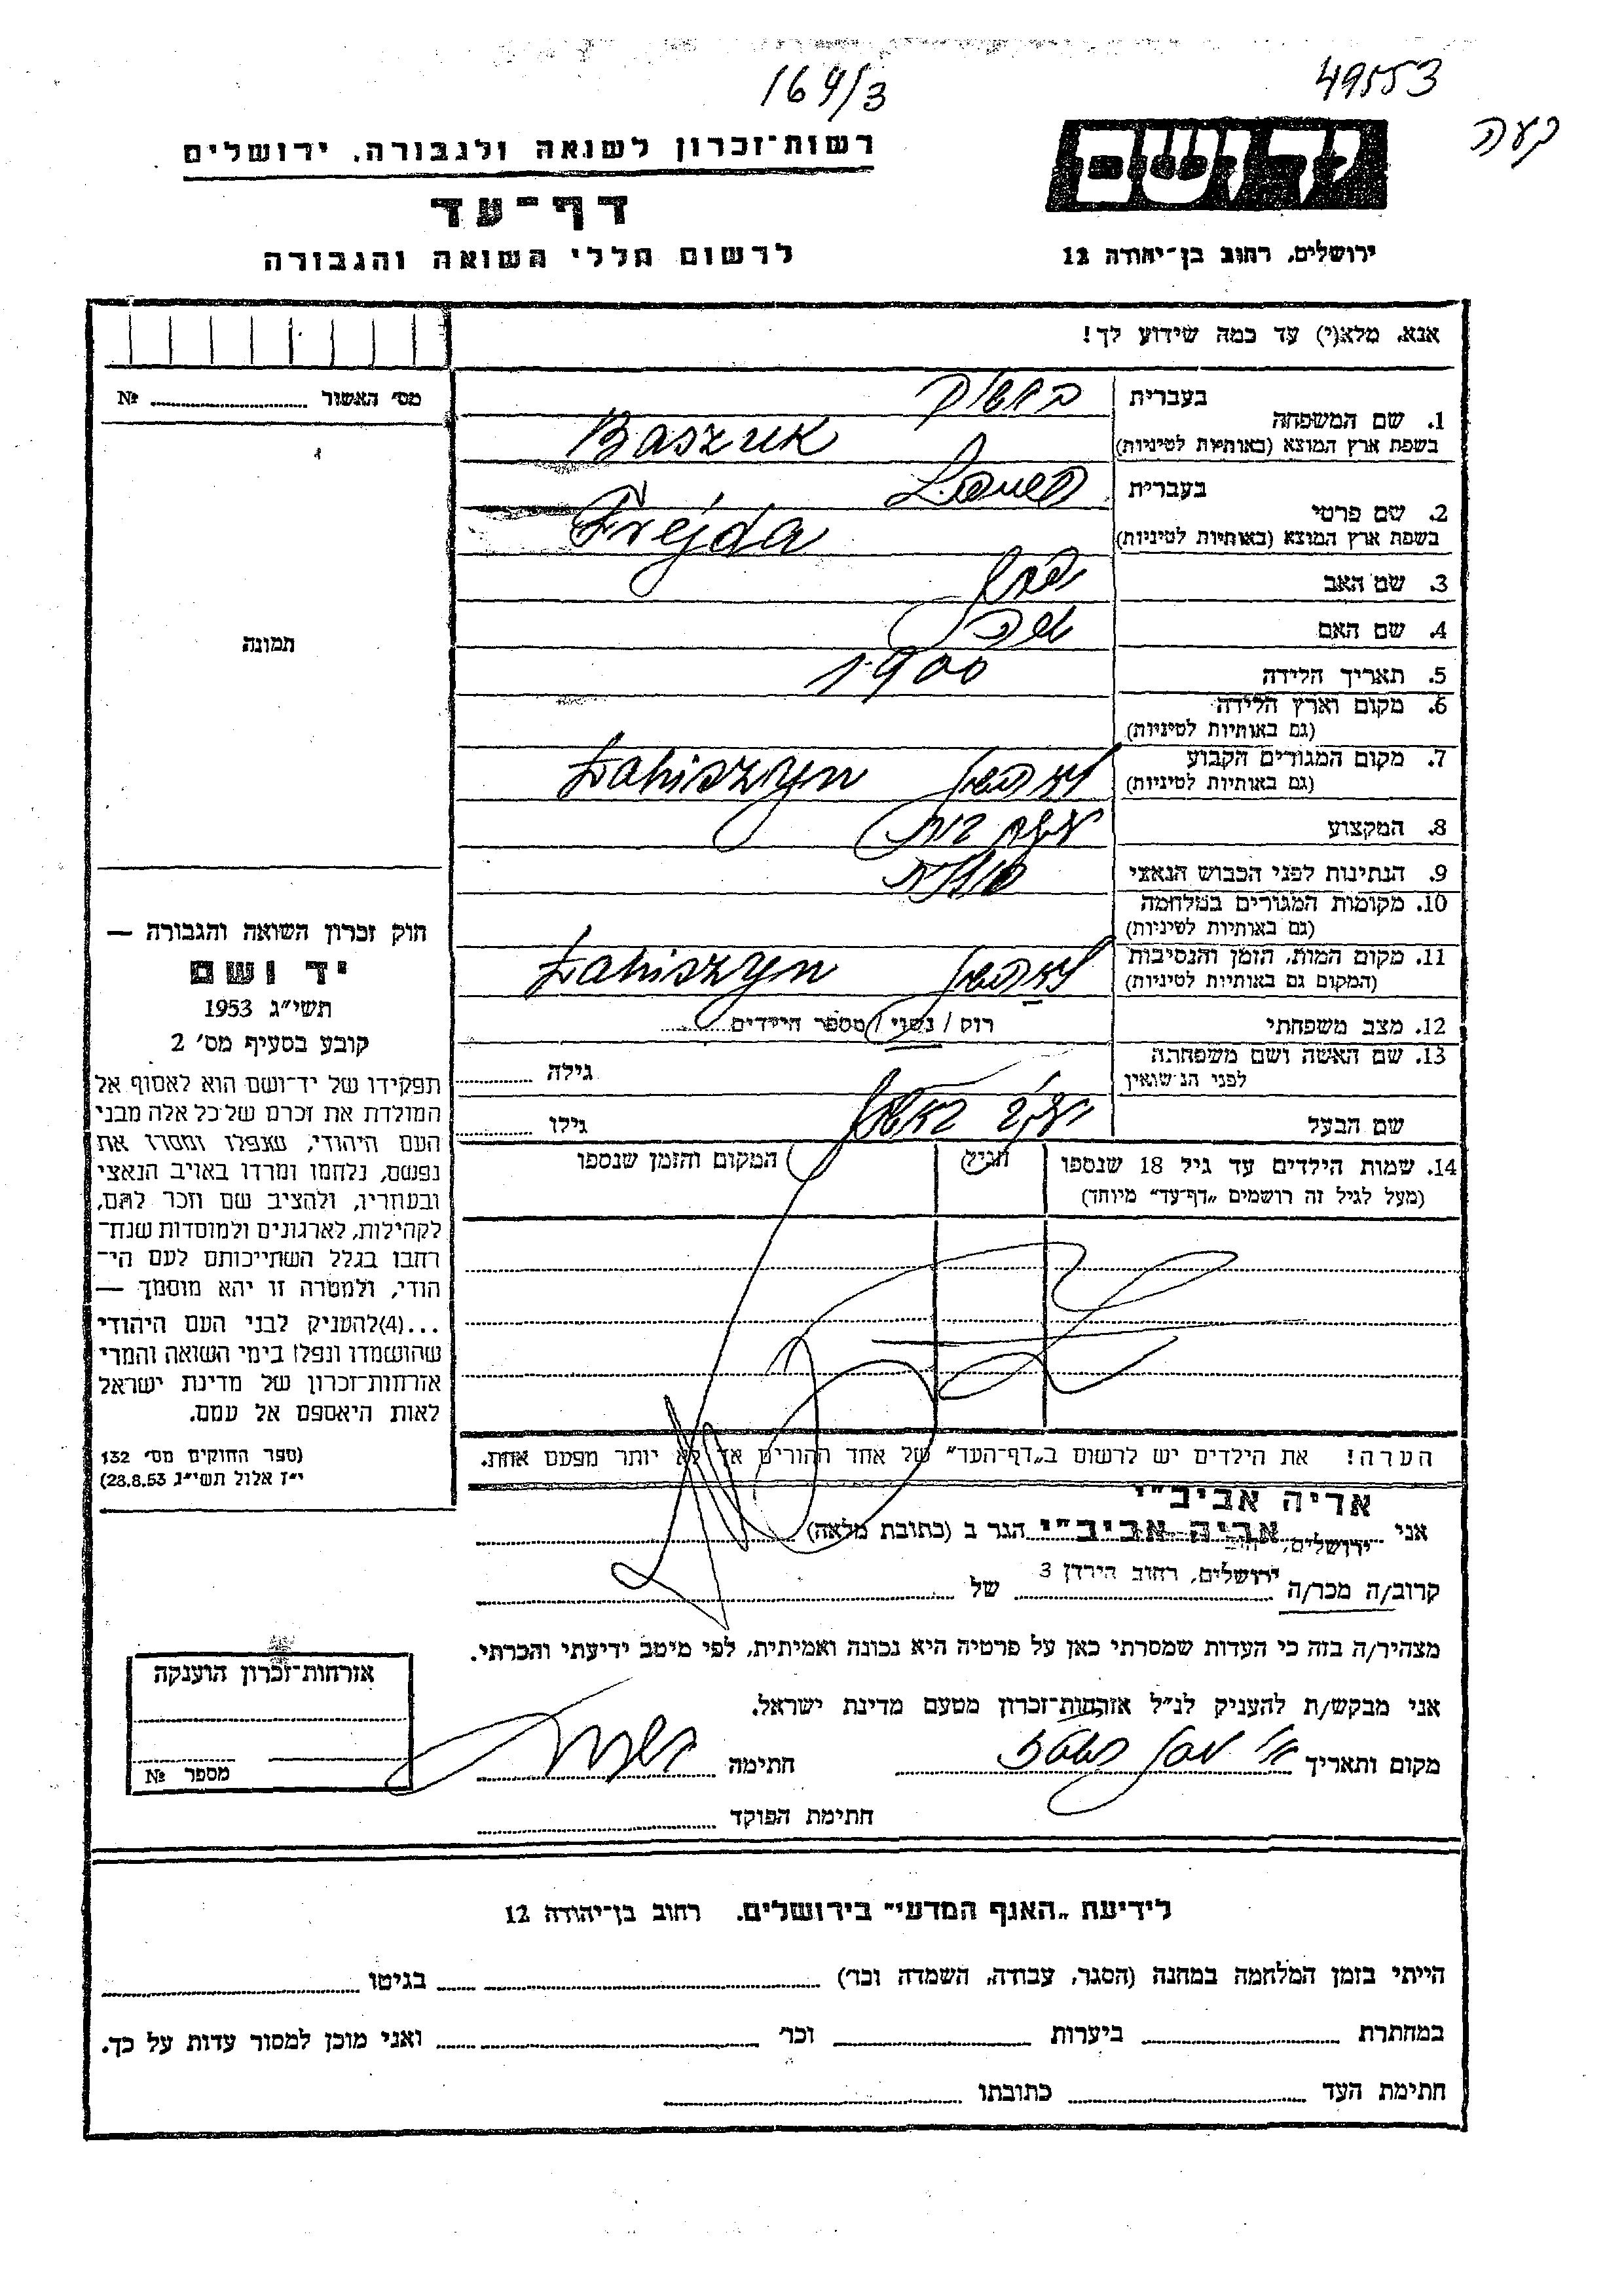 164/3
49553
רשות־זכרון לשואה ולגבורה, ירושלים
יד ושם
דף־עד
לרשום חללי השואה והגבורה
ירושלים, רחוב בן־יהודה 12
אנא, מלא(י) עד כמה שידוע לך!
מס׳ האשור № 
1. שם המשפחה
בעברית
בשפת ארץ המוצא (באותיות לטיניות) Baszuk
2. שם פרטי
בעברית
בשפת ארץ המוצא (באותיות לטיניות) Frejda
3. שם האב
4. שם האם
5. תאריך הלידה 1900
6. מקום וארץ הלידה
(גם באותיות לטיניות)
7. מקום המגורים הקבוע
(גם באותיות לטיניות) Łahiszyn
8. המקצוע
9. הנתינות לפני הכבוש הנאצי
10. מקומות המגורים במלחמה
(גם באותיות לטיניות)
11. מקום המות, הזמן והנסיבות
(המקום גם באותיות לטיניות) Łahiszyn
12. מצב משפחתי רוק / נשוי / מספר הילדים
13. שם האשה ושם משפחתה
לפני הנשואין גילה
שם הבעל גילו
14. שמות הילדים עד גיל 18 שנספו הגיל המקום והזמן שנספו
(מעל לגיל זה רושמים „דף־עד״ מיוחד)
הערה! את הילדים יש לרשום ב„דף־העד״ של אחד ההורים אך לא יותר מפעם אחת.
תמונה
חוק זכרון השואה והגבורה —
יד ושם
תשי״ג 1953
קובע בסעיף מס׳ 2
תפקידו של יד־ושם הוא לאסוף אל
המולדת את זכרם של כל אלה מבני
העם היהודי, שנפלו ומסרו את
נפשם, נלחמו ומרדו באויב הנאצי
ובעוזריו, ולהציב שם וזכר להם,
לקהילות, לארגונים ולמוסדות שנח־
רבו בגלל השתייכותם לעם הי־
הודי, ולמטרה זו יהא מוסמך —
...(4)להעניק לבני העם היהודי
שהושמדו ונפלו בימי השואה והמרי
אזרחות־זכרון של מדינת ישראל
לאות היאספם אל עמם.
(ספר החוקים מס׳ 132
י״ז אלול תשי״ג 28.8.53)
אריה אביב״י
אני אריה אביב״י הגר ב (כתובת מלאה)
ירושלים, רחוב הירדן 3
קרוב/ה מכר/ה של
מצהיר/ה בזה כי העדות שמסרתי כאן על פרטיה היא נכונה ואמיתית, לפי מיטב ידיעתי והכרתי.
אני מבקש/ת להעניק לנ״ל אזרחות־זכרון מטעם מדינת ישראל.
מקום ותאריך חתימה
חתימת הפוקד
אזרחות־זכרון הוענקה
מספר №
לידיעת „האגף המדעי״ בירושלים. רחוב בן־יהודה 12
הייתי בזמן המלחמה במחנה (הסגר, עבודה, השמדה וכד׳) בגיטו
במחתרת ביערות וכד׳ ואני מוכן למסור עדות על כך.
חתימת העד כתובתו